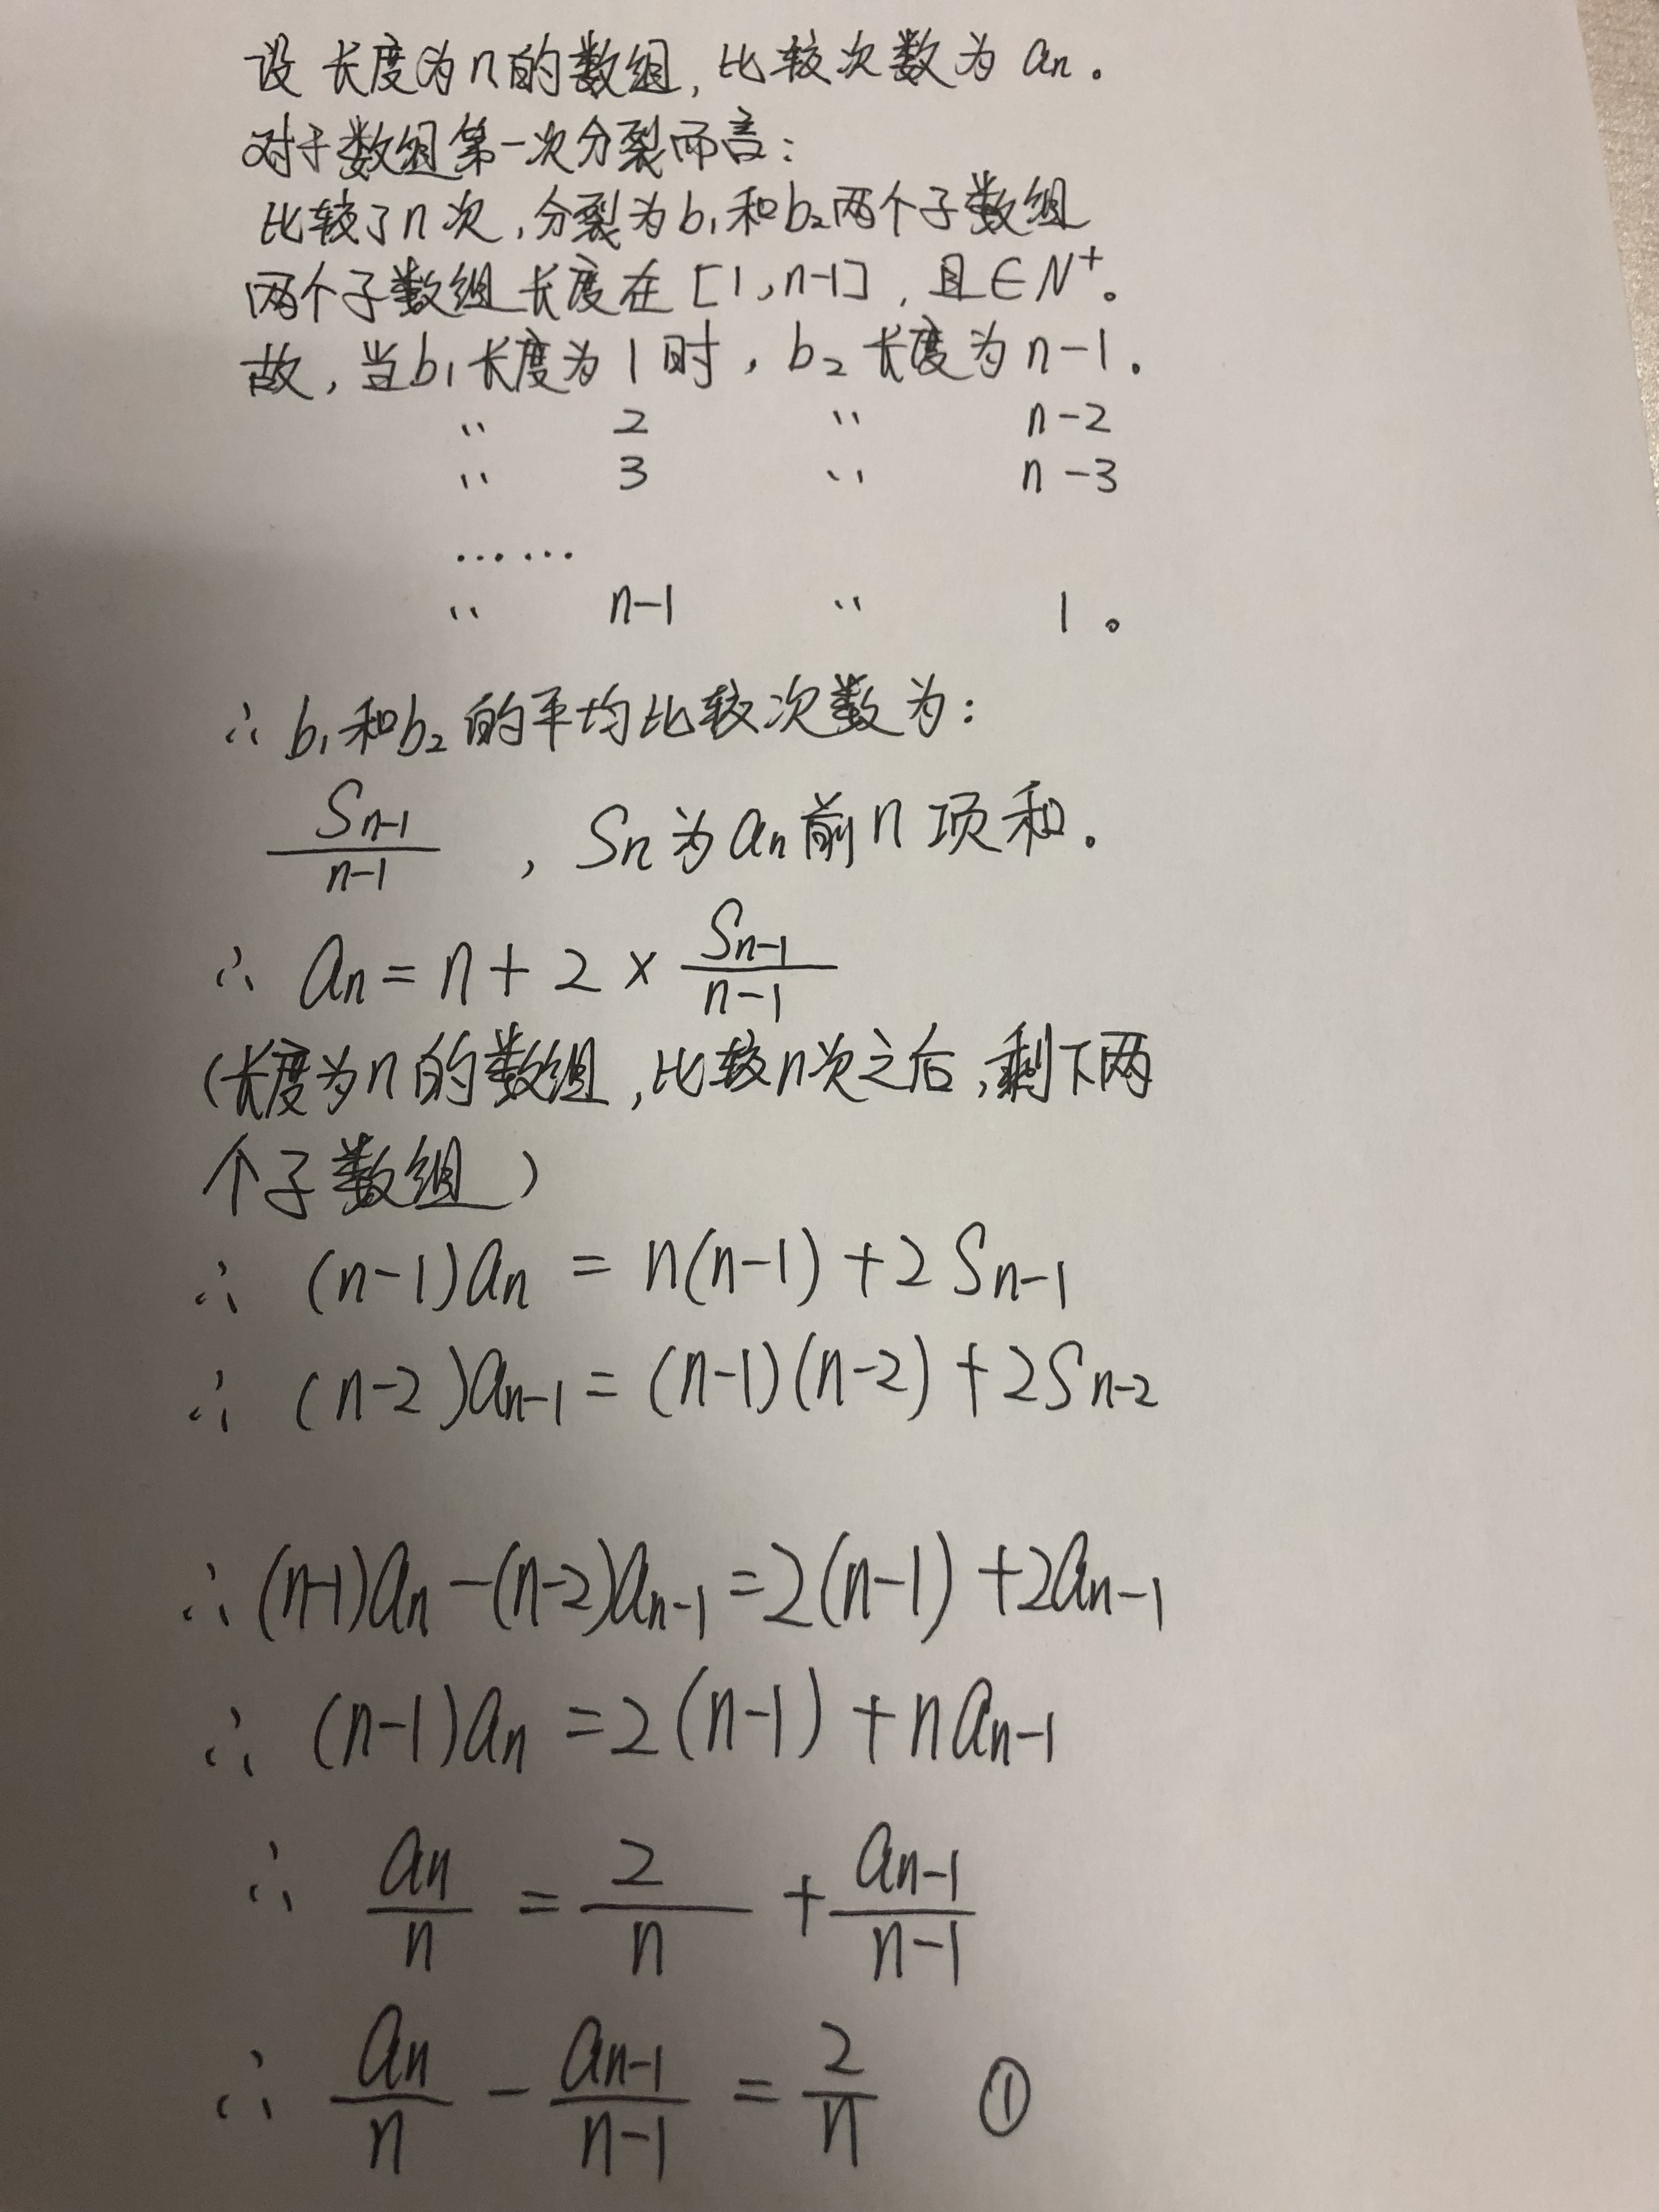 设长度为n的数组，比较次数为 an。
对于数组第一次分裂而言：
比较了n次，分裂为b₁和b₂两个子数组
两个子数组长度在 [1，n-1]，且∈N⁺。
故，当b₁长度为 1 时，b₂ 长度为 n-1。
〃 2 〃 n-2
〃 3 〃 n-3
……
〃 n-1 〃 1。
∴ b₁和b₂的平均比较次数为：
Sn-1/(n-1) ，Sn为an前n项和.
∴ an = n + 2 × Sn-1/(n-1)
(长度为n的数组，比较n次之后，剩下两
个子数组)
∴ (n-1)an = n(n-1) + 2Sn-1
∴ (n-2)an-1 = (n-1)(n-2) + 2Sn-2
∴ (n-1)an - (n-2)an-1 = 2(n-1) + 2an-1
∴ (n-1)an = 2(n-1) + nan-1
∴ an/n = 2/n + an-1/(n-1)
∴ an/n - an-1/(n-1) = 2/n ①